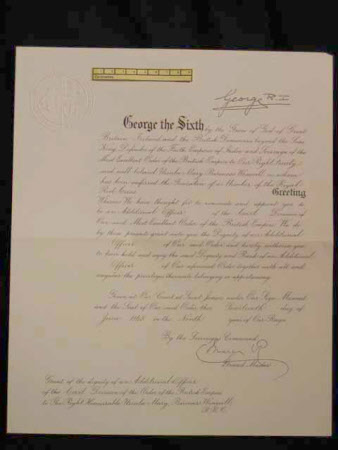 George R.I
George the Sixth, by the Grace of God of Great
Britain, Ireland and the British Dominions beyond the Seas
King, Defender of the Faith, Emperor of India and Sovereign of the
Most Excellent Order of the British Empire to Our Right trusty
and well beloved Ursula Mary, Baroness to whom
has been conferred the Decoration of a Member of the Royal
Red Cross Greeting
Whereas We have thought fit to nominate and appoint you to
be an Additional Officer of the Civil Division of
Our said Most Excellent Order of the British Empire We do
by these presents grant unto you the Dignity of an Additional
Officer of Our said Order and hereby authorise you
to have hold and enjoy the said Dignity and Rank of an Additional
Officer of Our aforesaid Order together with all and
singular the privileges thereunto belonging or appertaining.
Given at Our Court at Saint James's under Our Sign Manual
and the Seal of Our said Order this day of
June in the Ninth year of Our Reign
By the Sovereign's Command.
Grand Master
Grant of the dignity of an Additional Officer
of the Civil Division of the Order of the British Empire
to The Right Honourable Ursula Mary, Baroness
R.R.C.